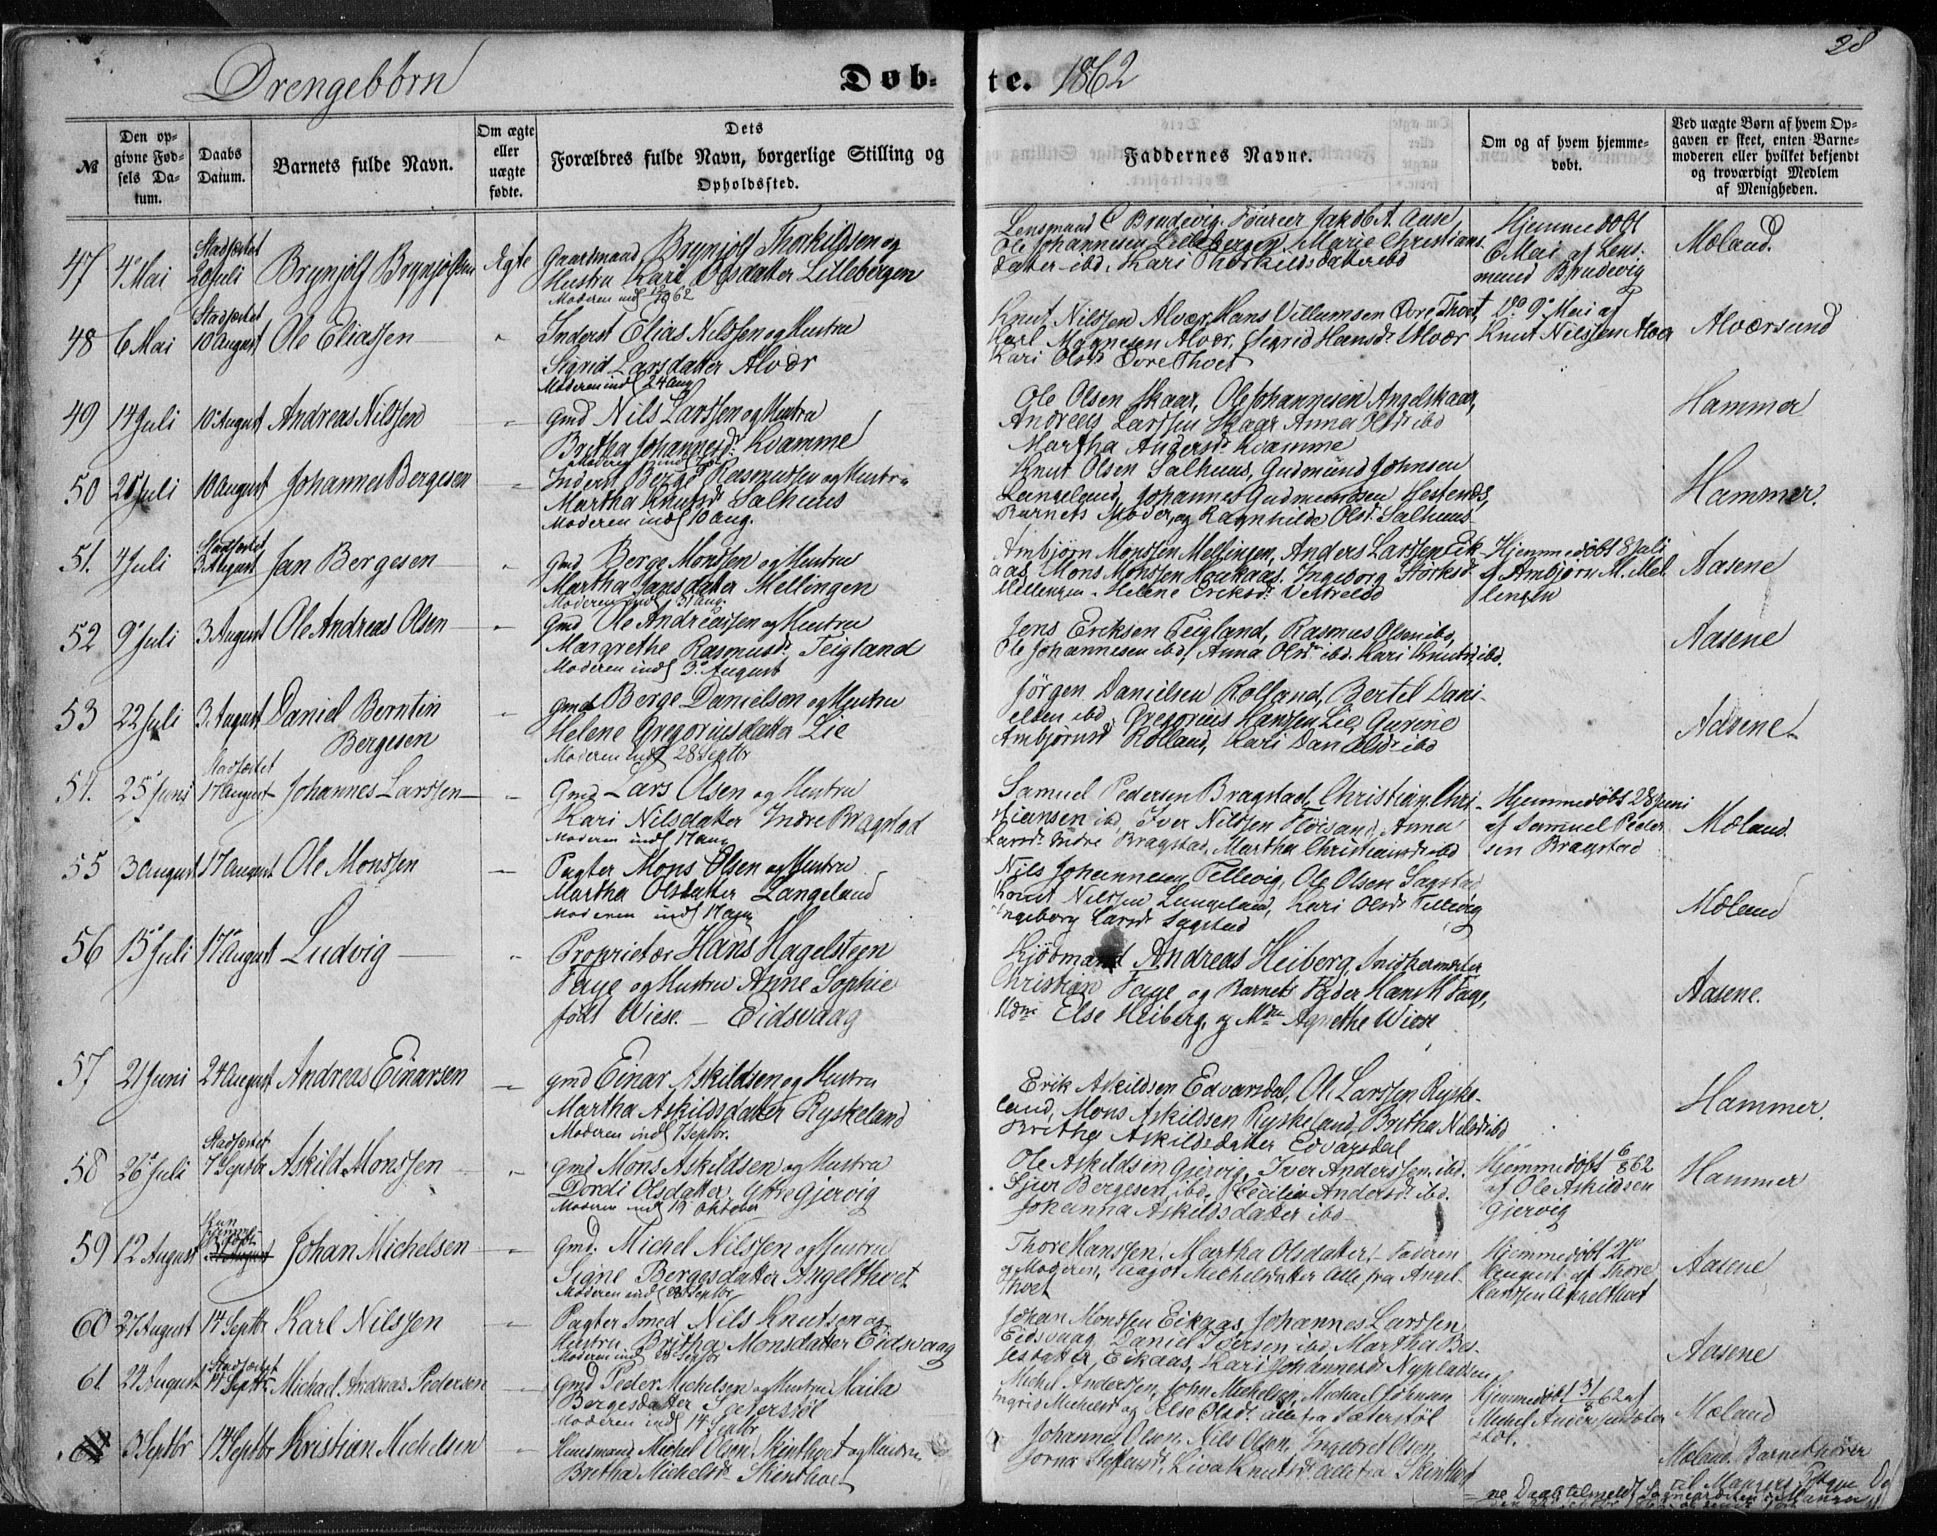 28
Drengebørn Døbte. 1862
№
Den opgivne Fødsels Datum.
Daabs Datum.
Barnets fulde Navn.
Om ægte eller uægte fødte.
Dets Forældres fulde Navn, borgerlige Stilling og Opholdssted.
Faddernes Navne.
Om og af hvem hjemmedøbt.
Ved uægte Børn af hvem Opgaven er skeet, enten Barnemoderen eller hvilket bekjendt og troværdigt Medlem af Menigheden.
47 4 Mai Stadfæstet 20 Juli Brynjolf Brynjolfsen Ægte Gaardmand Brynjolf Thorkildsen og
Hustru Kari Olsdatter Lillebergen
Moderen indl
Lensmand C Brudevig, Foureer Jakob A. Aase,
Ole Johannesen Lillebergen, Marie Christians
datter ibd. Kari Thorkildsdatter ibd
Hjemmedøbt
6 Mai af Lens:
mand Brudevig
Mæland.
48 6 Mai Stadfæstet 10 August Ole Eliassen " Inderst Elias Nilssen og Hustru
Sigrid Larsdatter Alvær
Moderen indl 24 aug
Knut Nilssen Alvær, Hans Villumsen Øvre Thvet,
Karl Magnesen Alvær, Sigrid Hansdr Alvær
Kari Olsdr Øvre Thvet
Do 9 Mai af
Knut Nilssen Alvær
Alværsund
49 14 Juli 10 August Andreas Nilssen " Gmd Nils Larssen og Hustru
Britha Johannesdr Kvamme
Ole Olsen Skaar, Ole Johannesen Angelskaar,
Andreas Larssen Skaar Anna Olsdr ibd
Martha Andersdr Kvamme
Hammer
50 21 Juli 10 August Johannes Bergesen " Inderst Berge Rasmussen og Hustru
Martha Knutsdr Salhuus
Moderen indl 10 aug.
Knut Olsen Salhuus, Gudmund Johnsen
Langeland, Johannes Gudmundsen Hestenes,
Barnets Moder, og Ragnhilde Olsdr Salhuus
Hammer.
51. 4 Juli Stadfæstet 3 August Jan Bergesen " Gmd Berge Monssen og Hustru
Martha Jansdatter Mellingen
Moderen indl 31 aug.
Ambjørn Monssen Mellingen, Anders Larssen Eik-
aas, Mons Monssen Haukaas, Ingeborg Størksdr
Mellingen, Helene Eriksdr
Hjemmedøbt 8 Juli
af Ambjørn M. Mel
lingen
Aasene
52 9 Juli 3 August Ole Andreas Olsen " Gmd Ole Andreassen og Hustru
Margrethe Rasmusdr Teigland
Moderen indl 3. August
Jens Eriksen Teigland, Rasmus Olsen ibd,
Ole Johannesen ibd, Anna Olsdr ibd. Kari Knutsdr ibd.
Aasene
53 22 Juli 3. August Daniel Berntin
Bergesen " Gmd Berge Danielsen og Hustru
Helene Gregoriusdatter Lie
Moderen indl 28 Septbr
Jørgen Danielsen Rolland, Bertel Dani-
elsen ibd, Gregorius Hanssen Lie, Gurine
Ambjørnsdr Rolland, Kari Danielsdr ibd
Aasene
54. 25 Juni Stadfæstet 17 August Johannes Larssen " Gmd Lars Olsen og Hustru
Kari Nilsdatter Indre Bragstad
Moderen indl 17 aug
Samuel Pedersen Bragstad, Christian Chri-
stiansen ibd, Iver Nilssen Fløisand, Anna
Larsdr Indre Bragstad, Martha Christiansdr ibd
Hjemmedøbt 28 Juni
af Samuel Peder
sen Bragstad
Mæland.
55 3 August 17 August Ole Monssen " Pagter Mons Olsen og Hustru
Martha Olsdatter Langeland
Moderen indl 17 aug
Nils Johannesen Tellevig, Ole Olsen Sagstad
Knut Nilssen Langeland, Kari Olsdr Tellevig
Ingeborg Larsdr Sagstad
Mæland
56 15 Juli 17 August Ludvig " Proprietær Hans Hagelsteen
Faye og Hustru Anne Sophie
født Wiese. – Eidsvaag
Kjøbmand Andreas Heiberg, Snidkermester
Christian Faye og Barnets Fader Hans H Faye,
Mdme Else Heiberg, og Mdm Agnethe Wiese
Aasene.
57 21 Juni 24 August Andreas Einarsen " Gmd Einar Askildsen og Hustru
Martha Askildsdatter Ryskeland
Moderen indl 7 Septbr.
Erik Askildsen Edvarsdal, Ole Larssen Ryske-
land, Mons Askildsen Ryskeland, Britha Nilsdr ibd
Brithe Askildsdatter Edvarsdal
Hammer.
58 26 Juli Stadfæstet 7 Septbr Askild Monssen " Gmd Mons Askildsen og Hustru
Dordi Olsdatter Ytre Gjervig
Moderen indl Oktober
Ole Askildsen Gjervig, Iver Anderssen ibd.
Sjur Bergesen ibd, Cecilie Andersdr ibd.
Johanna Askildsdatter ibd
Hjemmedøbt 6/8 62
af Ole Askildsen
Gjervig
Hammer
59 12 August Kun hjemmedøbt Johan Michelsen " Gmd: Michel Nilssen og Hustru
Signe Bergesdatter Angelthvet
Moderen indl 28 Septbr
Thore Hanssen, Martha Olsdatter, Faderen
og Moderen, Aagot Michelsdatter Alle fra Angel-
thvet
Hjemmedøbt 21de
August af Thore
Hanssen Angelthvet
Aasene
60 27 August 14 Septbr Karl Nilssen " Pagter Smed Nils Knutsen og
Hustru Britha Monsdatter Eidsvaag
Moderen indl 28 Septbr
Johan Monssen Eikaas, Johannes Larssen
Eidsvaag, Daniel Iversen ibd, Martha Bes-
sesdatter Eikaas, Kari Johannesdr Nypladsen,
Aasene
61 24 August Stadfæstet 14 Septbr Michael Andreas Pedersen " Gmd Peder Michelsen og Hustru Maila
Bergesdatter Sæterstøl
Moderen indl 14 Septbr
Michel Anderssen, John Michelsen, Michael Johnsen
Ingrid Michelsdr og Else Olsdr alle fra Sæterstøl
Hjemmedøbt 31/8 62 af
Michel Anderssen Sæter
støl.
Mæland
3 Septbr 14 Septbr Kristian Michelsen " Huusmand Michel Olsen Skinthvet og Hustru
Bretha Michelsdr Skinthvet
Johannes Olsen, Nils Olsen, Ingebret Olsen,
Jorna Steffensdr, Liva Knutsdr alle fra Skinthvet
Mæland. Barnet hører
til Mangers